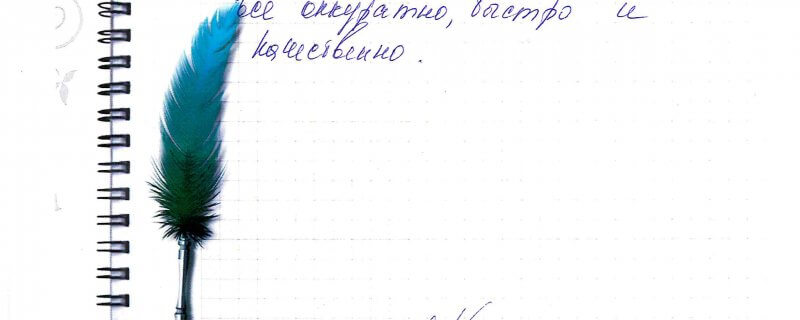 все аккуратно, быстро и
качественно.